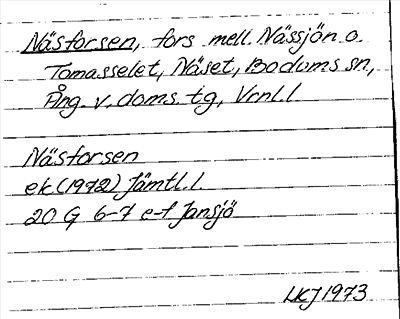 Näsforsen, fors mell. Nässjön o.
Tomasselet, Näset, Bodums sn,
Ång. v. doms. tg, Vrnl. l
Näsforsen
ek (1972) Jämtl. l.
20 G 6-7 e-f Jansjö
LKJ 1973